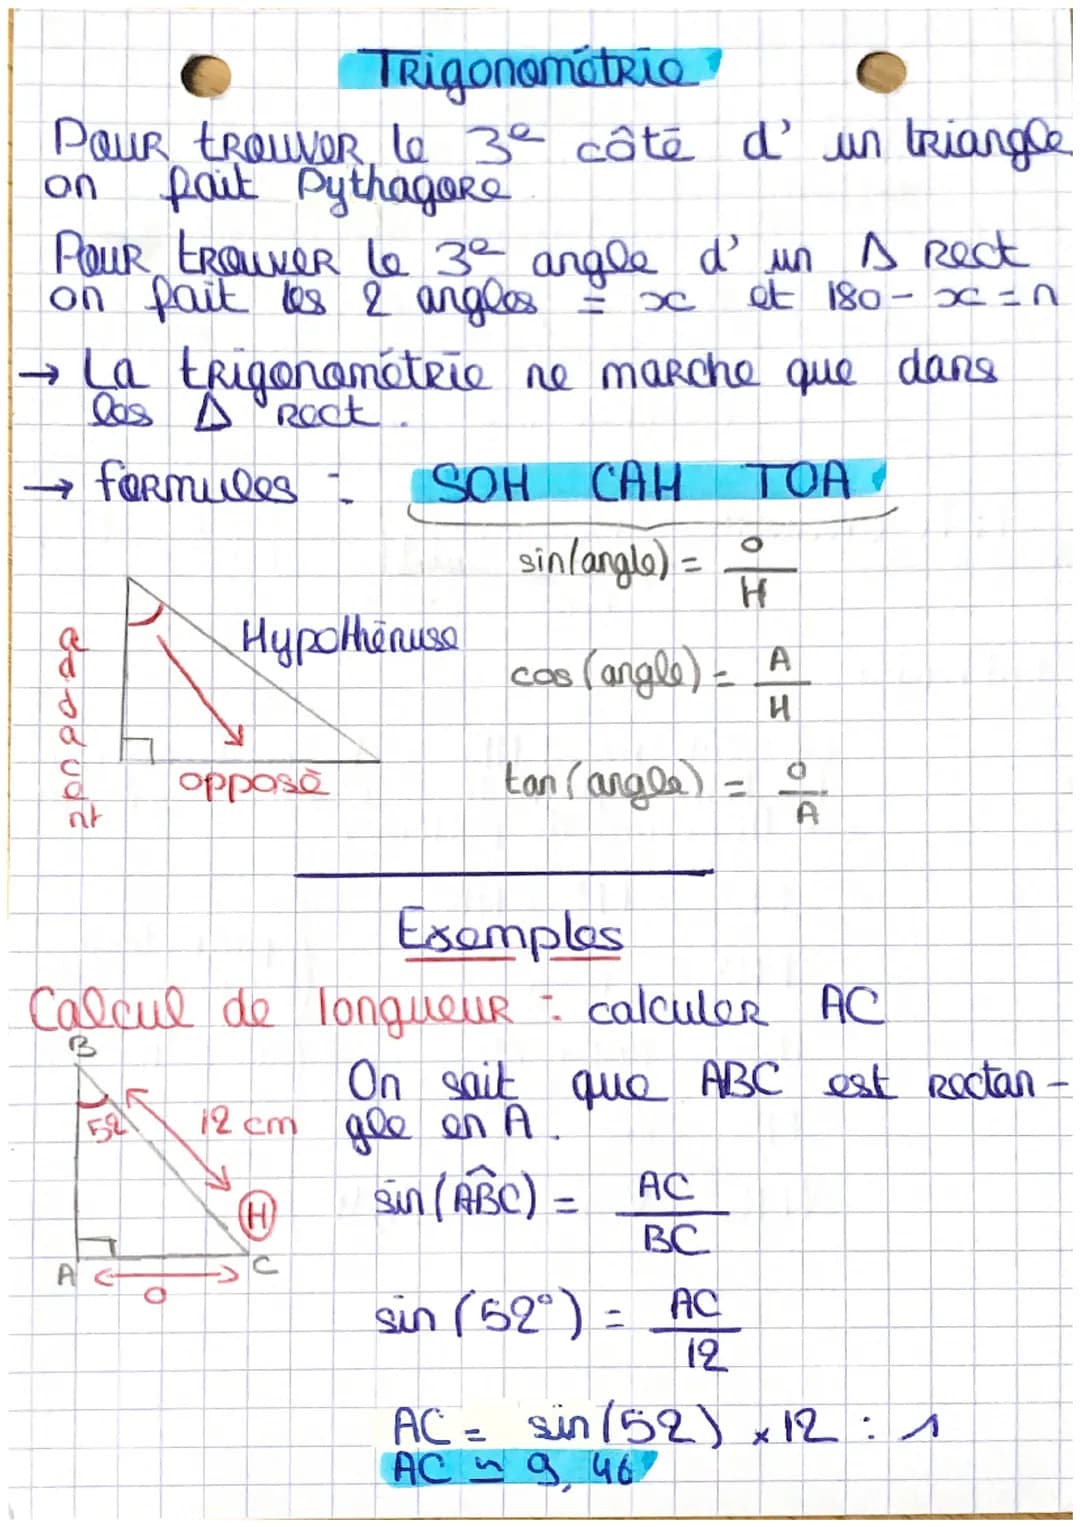 Trigonométrie
Pour trouver le 3e côté d' un triangle
on fait Pythagore
Pour trouver le 3e angle d' un Δ Rect
on fait les 2 angles = x et 180 - x = n
→ La trigonométrie ne marche que dans
les Δ Rect.
→ formules : SOH CAH TOA
sin(angle) = O/H
Hypothénuse
cos (angle) = A/H
adjacent
opposé
tan (angle) = O/A
Exemples
Calcul de longueur : calculer AC
B
On sait que ABC est rectan-
52 12 cm gle en A.
sin (ABC) = AC/BC
H
A C
O
sin (52°) = AC/12
AC = sin(52) × 12 : 1
AC ≃ 9,46